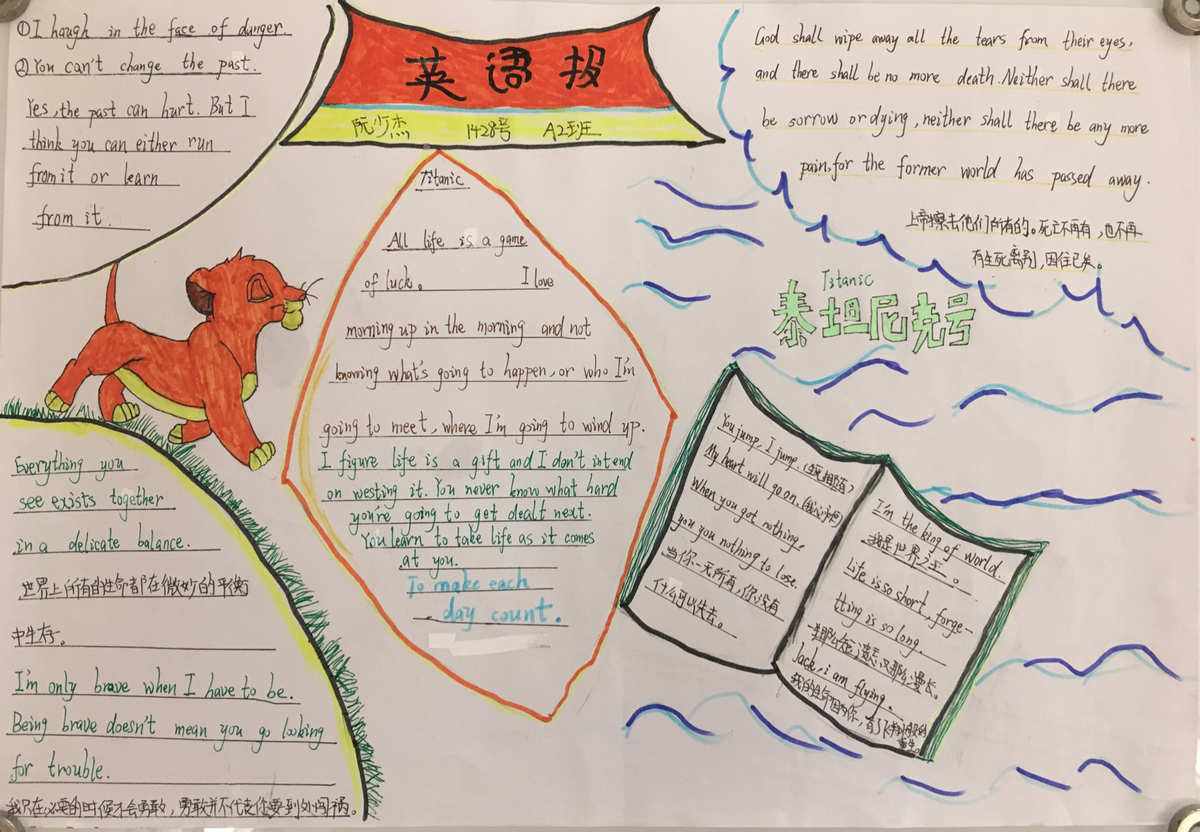 ①I haugh in the face of danger.
②You can't change the past.
Yes, the past can hurt. But I
think you can either run
from it or learn
from it.
英语报
阮少杰 1428号 A2班
Titanic
All life is a game
of luck。 I love
morning up in the morning and not
knowing what's going to happen, or who I'm
going to meet, where I'm going to wind up.
I figure life is a gift and I don't intend
on westing it. You never know what hard
you're going to get dealt next.
You learn to take life as it comes
at you.
To make each
day count.
God shall wipe away all the tears from their eyes,
and there shall be no more death. Neither shall there
be sorrow or dying, neither shall there be any more
pain, for the former world has passed away.
上帝擦去他们所有的。死亡不再有，也不再
有生死离别，因往已矣。
Titanic
泰坦尼克号
Everything you
see exists together
in a delicate balance.
世界上所有的生命都在微妙的平衡
中生存。
I'm only brave when I have to be.
Being brave doesn't mean you go looking
for trouble.
我只在必要的时候才会勇敢，勇敢并不代表你要到处闯祸。
You jump, I jump
My heart will go on.
When you got nothing,
you you nothing to lose.
当你一无所有，你没有
什么可以失去。
I'm the king of world.
我是世界之王。
Life is so short, forge-
tting is so long.
那么短，遗忘又那么漫长。
Jack, i am flying.
我的生命因为你，有了